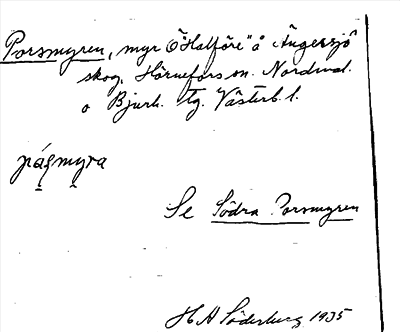 Porsmyren, myr Ö "Halföre" å Ängersjö
skog, Hörnefors sn. Nordmal.
o Bjurh. tg. Västerb. l.
påsmyra
Se Södra Porsmyren
H A Söderberg 1935